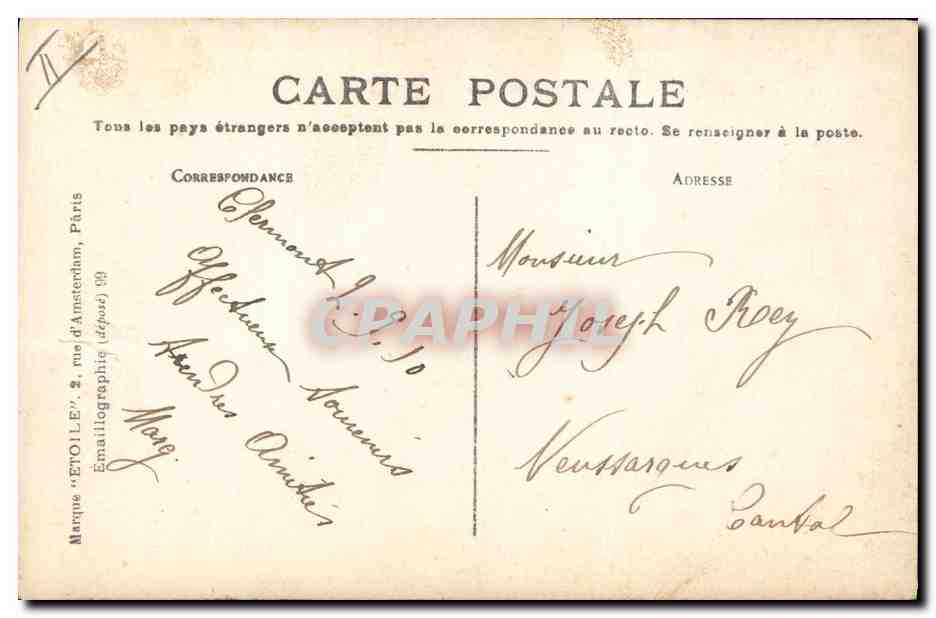 CARTE POSTALE
Tous les pays étrangers n'acceptent pas la correspondance au recto. Se renseigner à la poste.
CORRESPONDANCE
Clermont 2.9.10
Affectueux Souvenirs
tendres Amitiés
Marg
ADRESSE
Monsieur
Joseph Rey
Neussargues
Cantal
Marque "ETOILE". 2, rue d'Amsterdam, Pàris
Emaillographie (déposé) 99
CPAPHIL